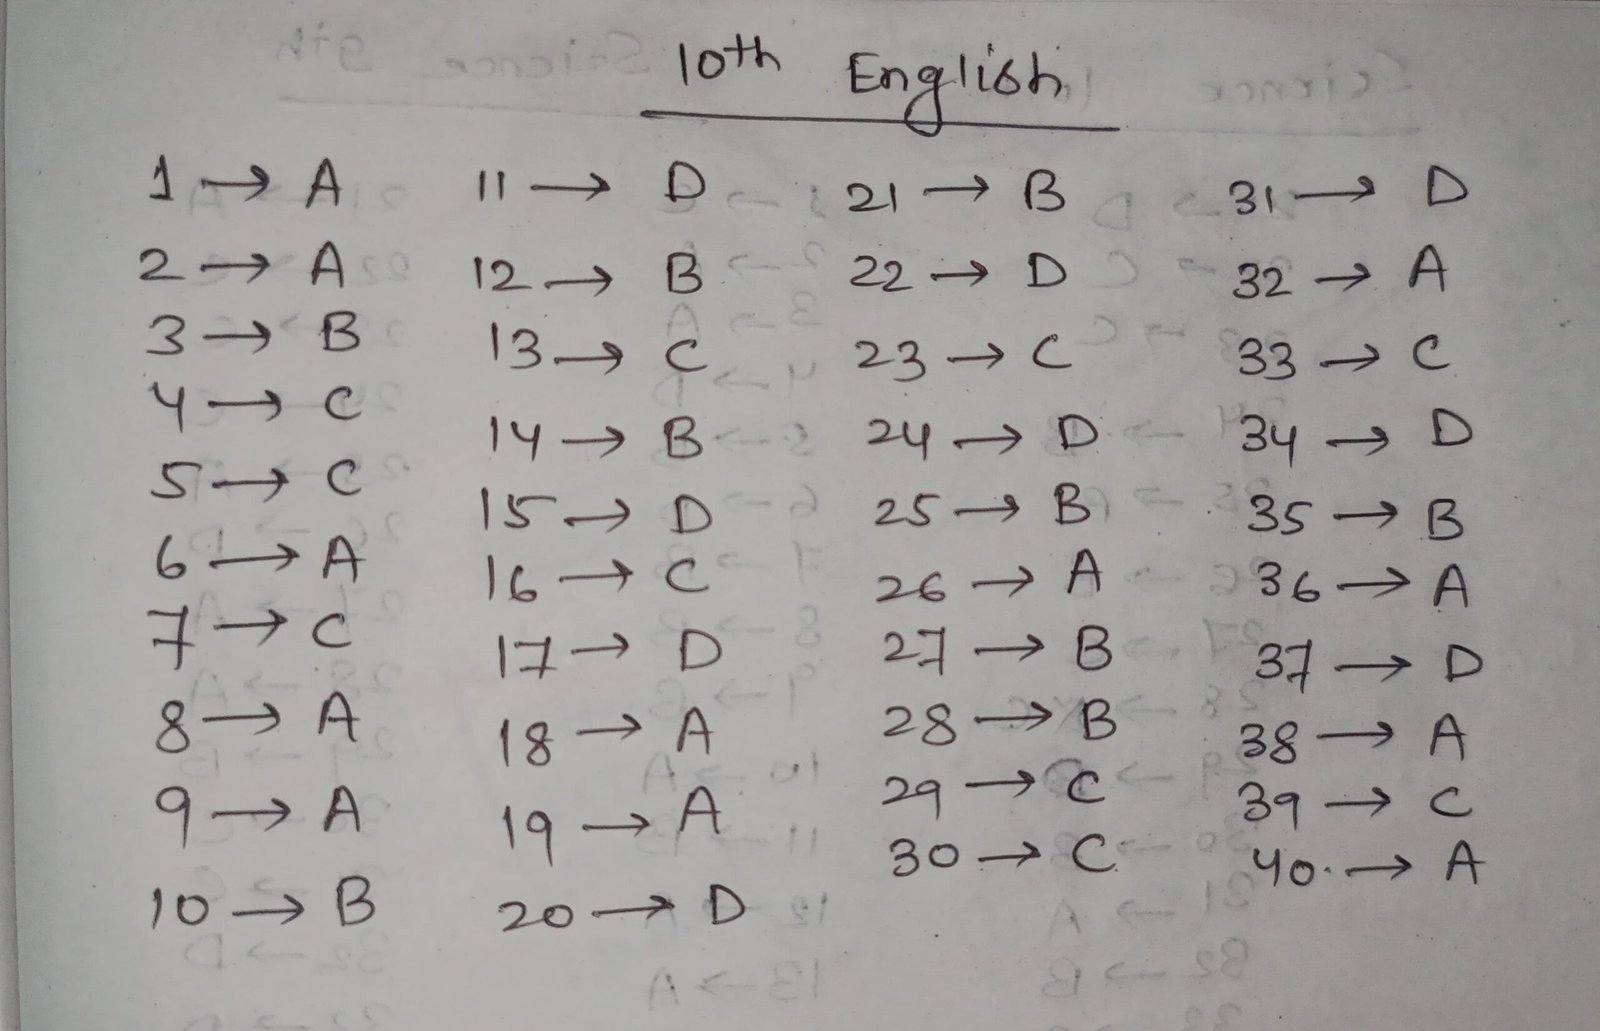 10th English
1 → A
2 → A
3 → B
4 → C
5 → C
6 → A
7 → C
8 → A
9 → A
10 → B
11 → D
12 → B
13 → C
14 → B
15 → D
16 → C
17 → D
18 → A
19 → A
20 → D
21 → B
22 → D
23 → C
24 → D
25 → B
26 → A
27 → B
28 → B
29 → C
30 → C
31 → D
32 → A
33 → C
34 → D
35 → B
36 → A
37 → D
38 → A
39 → C
40 → A